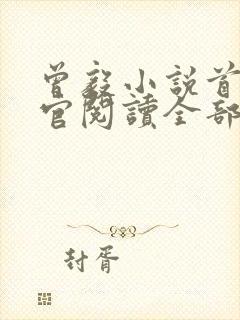 曾毅小説首
官閱讀全部
封胥